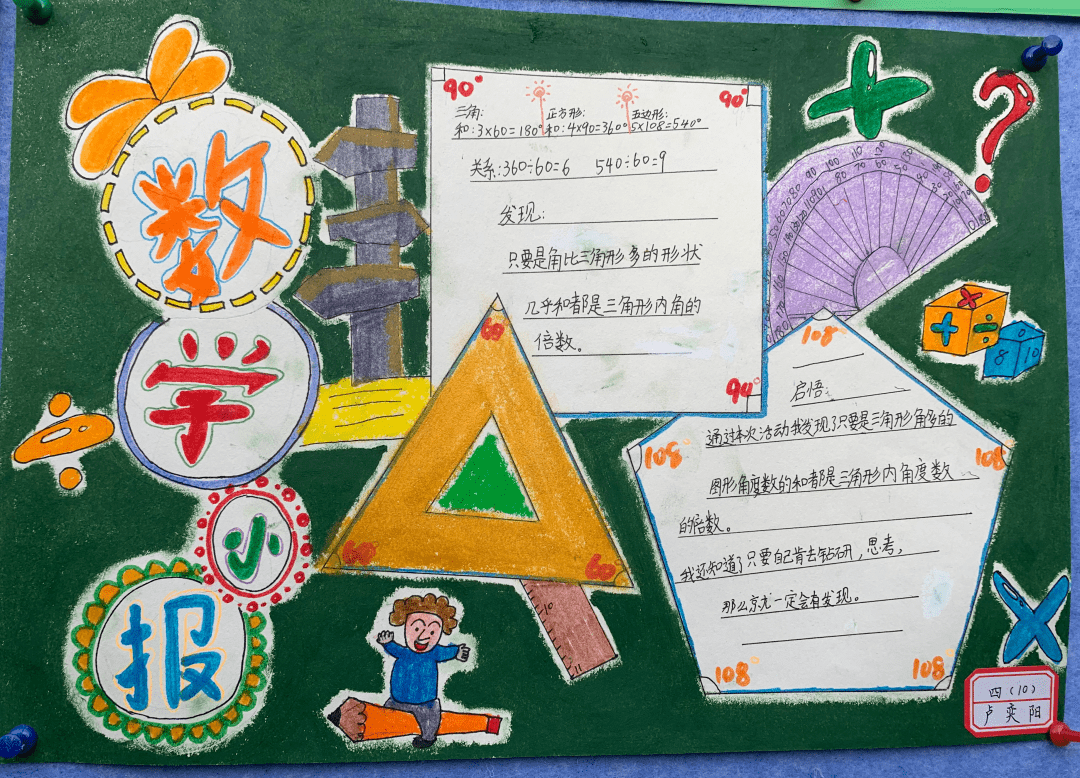 数
学
小
报
90° 90°
三角: 正方形: 五边形:
和:3×60=180° 和:4×90=360° 5×108=540°
关系:360÷60=6 540÷60=9
发现:
只要是角比三角形多的形状
几乎和都是三角形内角的
倍数。
90°
60
60 60
108°
启悟:
通过本次活动我发现了只要是三角形角多的
108° 108°
图形角度数的和都是三角形内角度数
的倍数。
我还知道了只要自己肯去钻研,思考,
那么京尤一定会有发现。
108° 108°
四(10)
卢奕阳